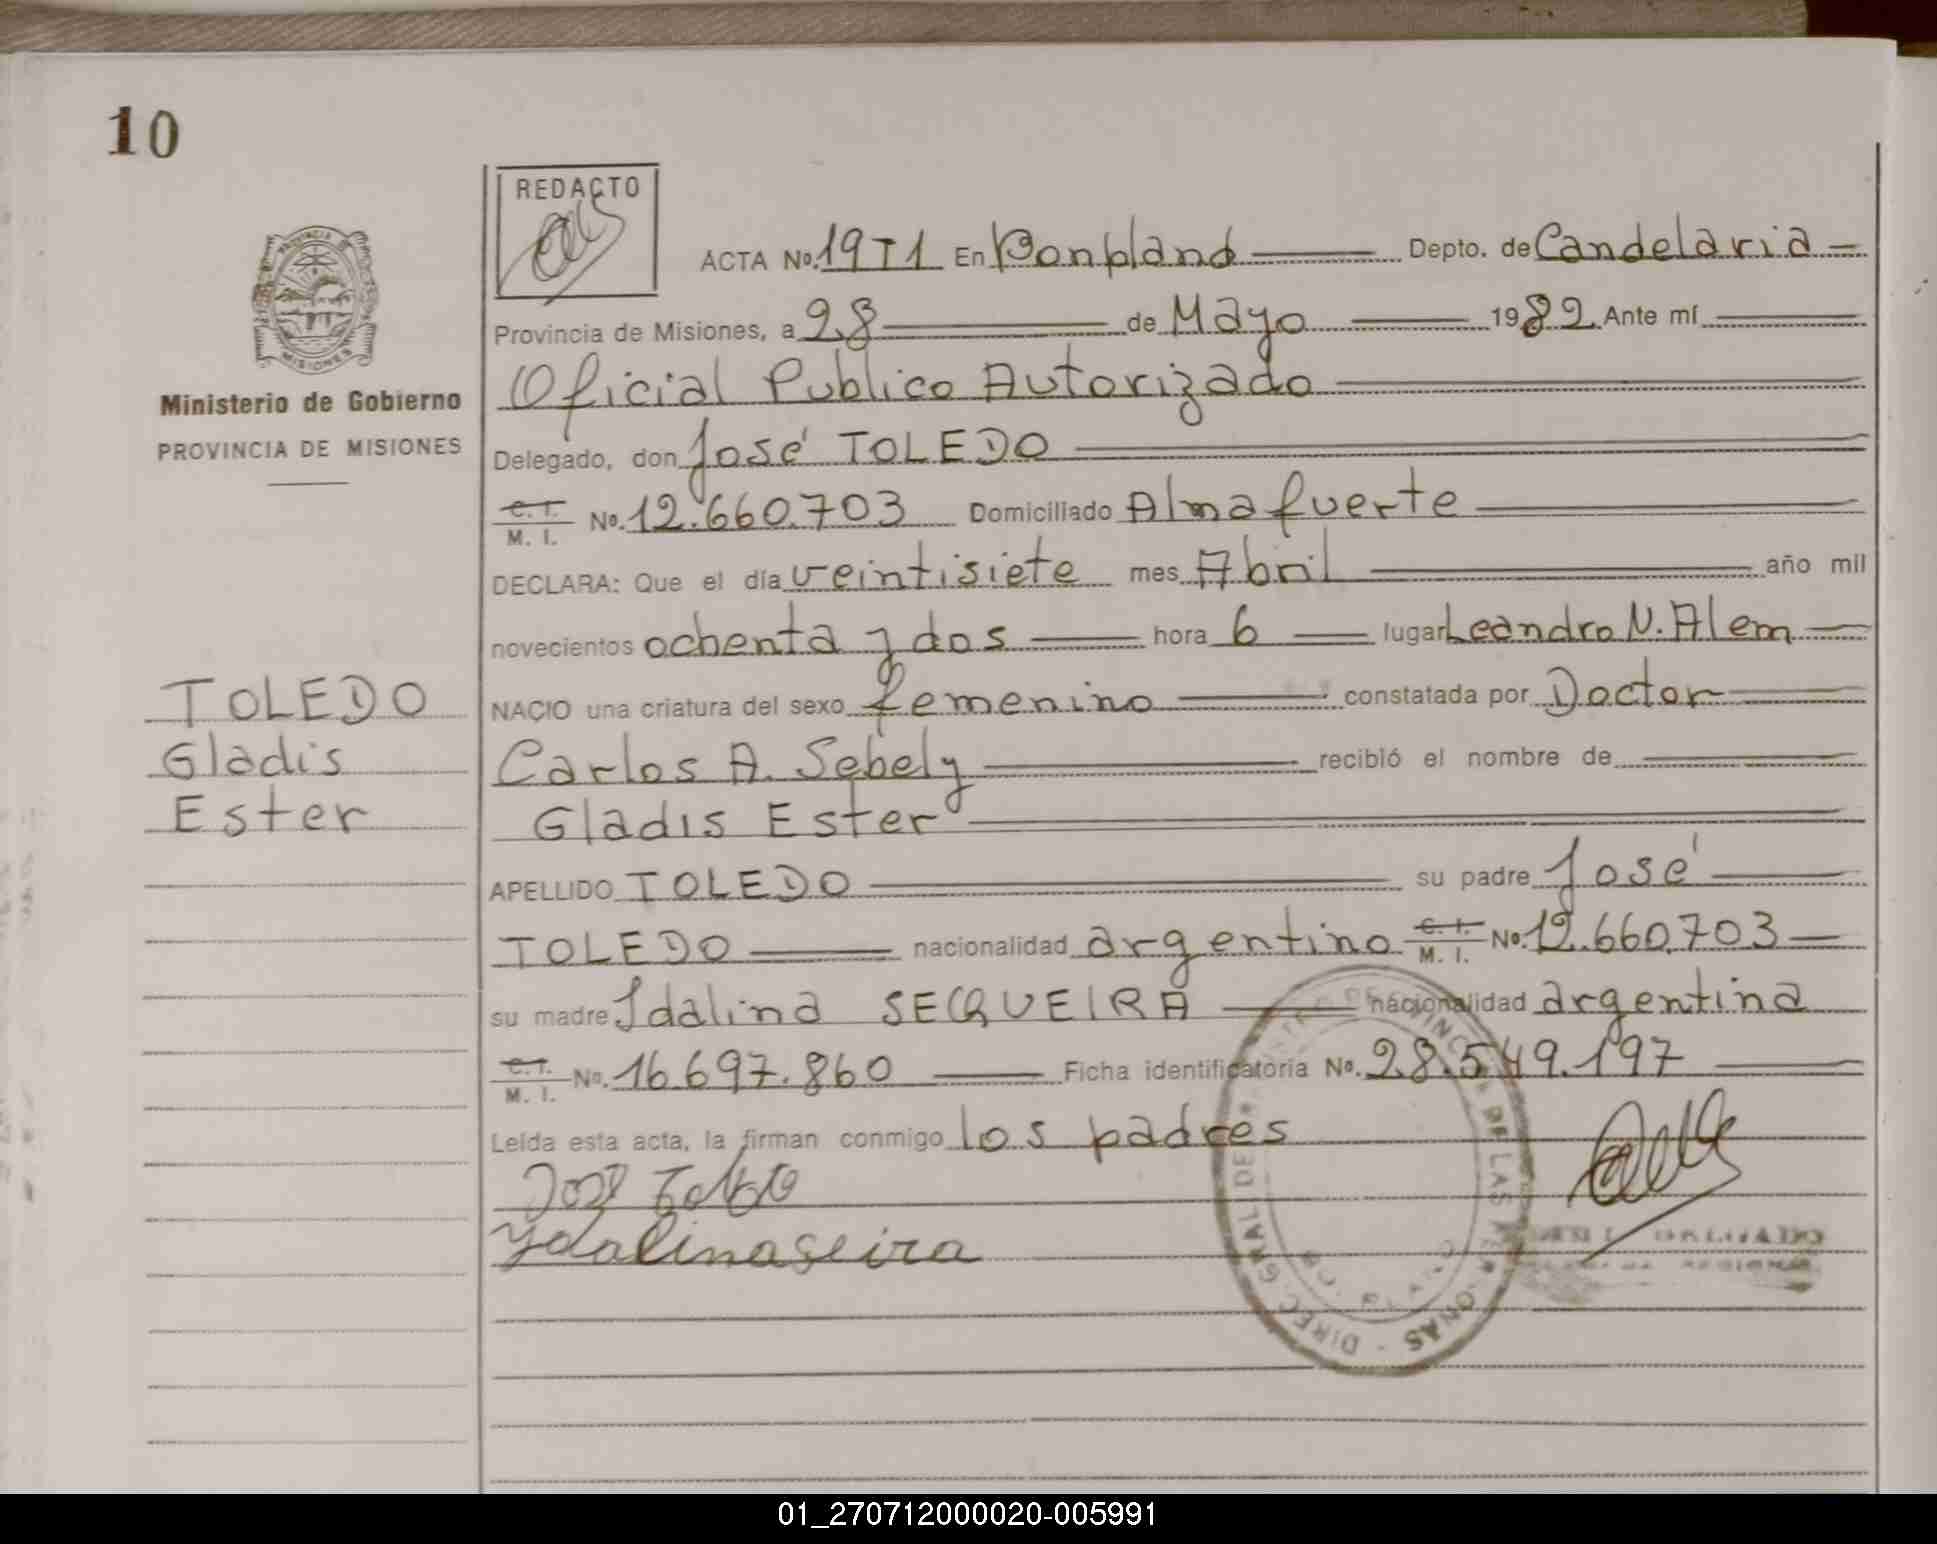 10
REDACTO
ACTA No. 19T1 En Bonpland Depto. de Candelaria
Provincia de Misiones, a 28 de Mayo 1982 Ante mí
Oficial Publico Autorizado
Delegado, don José TOLEDO
C. I. M. I. No. 12.660.703 Domiciliado Almafuerte
DECLARA: Que el día veintisiete mes Abril año mil
novecientos ochenta y dos hora 6 lugar Leandro N. Alem
NACIO una criatura del sexo femenino constatada por Doctor
Carlos A. Sebely recibló el nombre de
Gladis Ester
APELLIDO TOLEDO su padre José
TOLEDO nacionalidad argentino C. I. M. I. No. 12.660.703
su madre Idalina SECQUEIRA nacionalidad argentina
C. I. M. I. No. 16.697.860 Ficha identificatoria No. 28.549.197
Leída esta acta, la firman conmigo los padres
José Toledo
Ydalinaseira
PROVINCIA DE
MISIONES
Ministerio de Gobierno
PROVINCIA DE MISIONES
TOLEDO
Gladis
Ester
DE LAS PERSONAS - DIREC. GRAL. DE
01_270712000020-005991